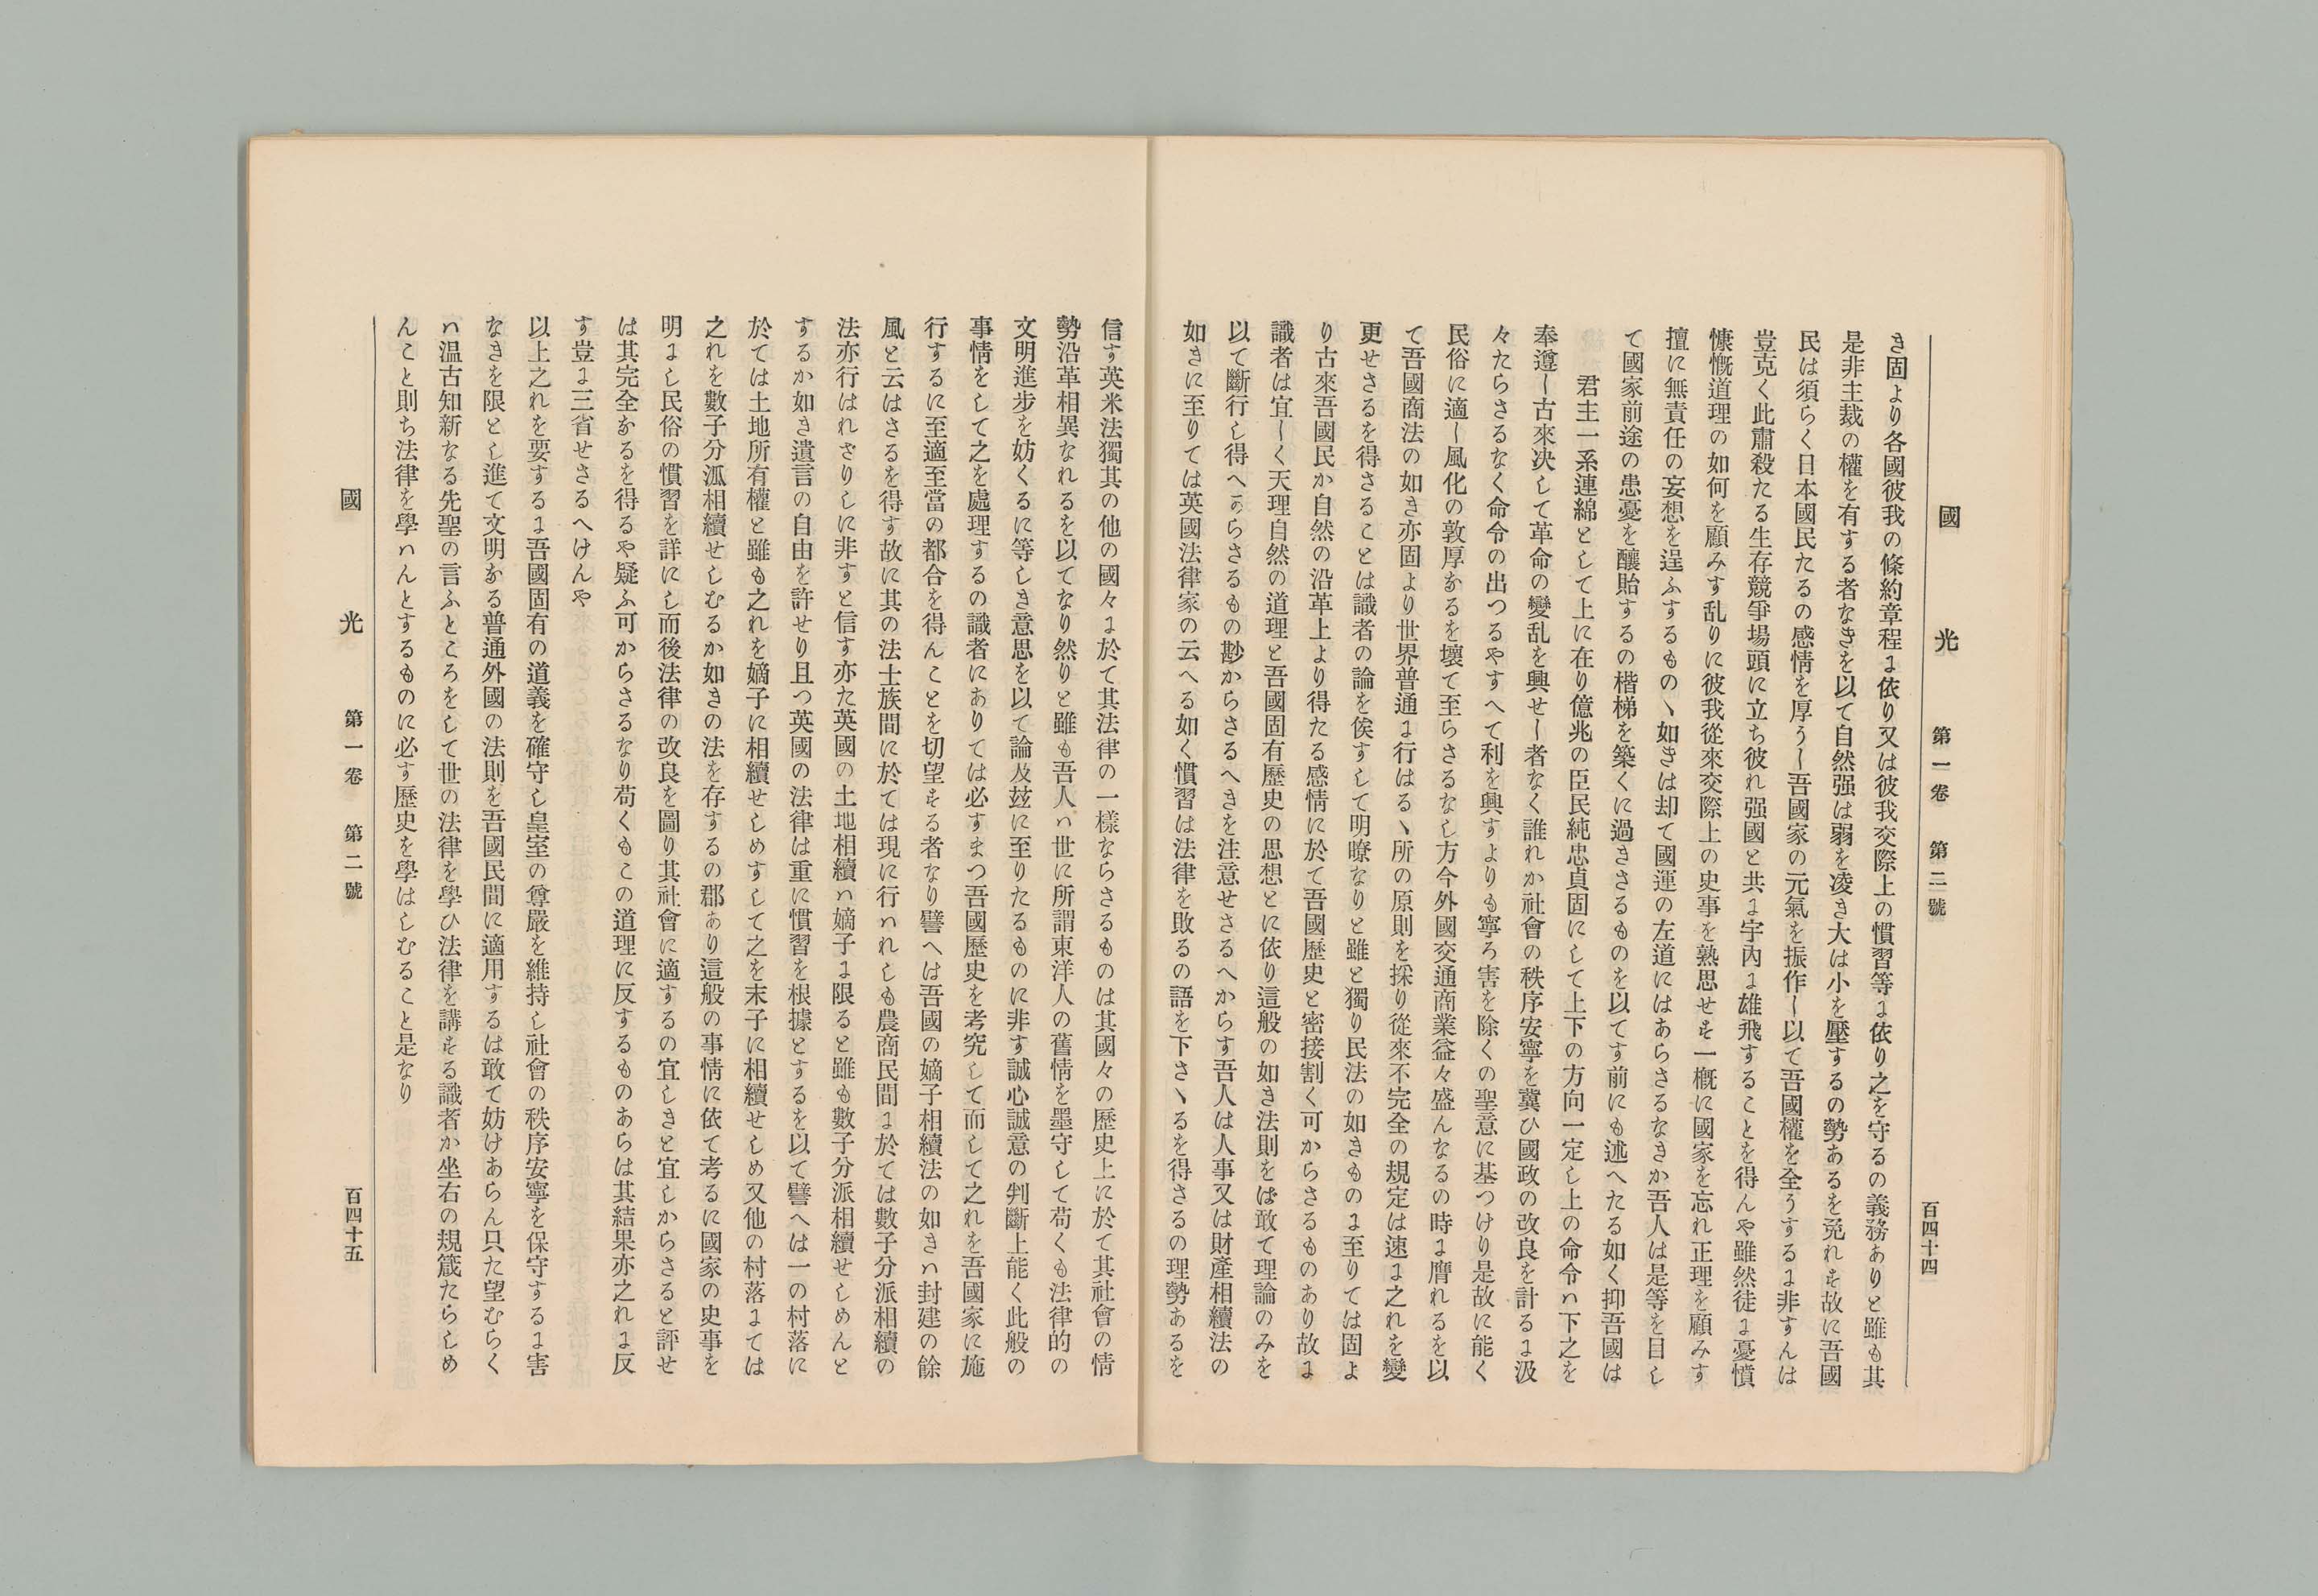 國光　第一卷　第二號　百四十四
き固より各國彼我の條約章程に依り又は彼我交際上の慣習等に依り之を守るの義務ありと雖も其
是非主裁の權を有する者なきを以て自然强は弱を凌き大は小を壓するの勢あるを免れす故に吾國
民は須らく日本國民たるの感情を厚うし吾國家の元氣を振作し以て吾國權を全うするに非すんは
豈克く此肅殺たる生存競爭場頭に立ち彼れ强國と共に宇內に雄飛することを得んや雖然徒に憂憤
慷慨道理の如何を顧みす乱りに彼我從來交際上の史事を熟思せす一概に國家を忘れ正理を顧みす
擅に無責任の妄想を逞ふするものヽ如きは却て國運の左道にはあらさるなきか吾人は是等を目し
て國家前途の患憂を釀貽するの楷梯を築くに過きさるものを以てす前にも述へたる如く抑吾國は
君主一系連綿として上に在り億兆の臣民純忠貞固にして上下の方向一定し上の命令ハ下之を
奉遵し古來决して革命の變乱を興せし者なく誰れか社會の秩序安寧を冀ひ國政の改良を計るに汲
々たらさるなく命令の出つるやすへて利を興すよりも寧ろ害を除くの聖意に基つけり是故に能く
民俗に適し風化の敦厚なるを壞て至らさるなし方今外國交通商業益々盛んなるの時に膺れるを以
て吾國商法の如き亦固より世界普通に行はるヽ所の原則を採り從來不完全の規定は速に之れを變
更せさるを得さることは識者の論を俟すして明瞭なりと雖と獨り民法の如きものに至りては固よ
り古來吾國民か自然の沿革上より得たる感情に於て吾國歷史と密接割く可からさるものあり故に
識者は宜しく天理自然の道理と吾國固有歷史の思想とに依り這般の如き法則をば敢て理論のみを
以て斷行し得へからさるもの尠からさるへきを注意せさるへからす吾人は人事又は財產相續法の
如きに至りては英國法律家の云へる如く慣習は法律を敗るの語を下さヽるを得さるの理勢あるを
信す英米法獨其の他の國々に於て其法律の一樣ならさるものは其國々の歷史上に於て其社會の情
勢沿革相異なれるを以てなり然りと雖も吾人ハ世に所謂東洋人の舊情を墨守して苟くも法律的の
文明進步を妨くるに等しき意思を以て論及玆に至りたるものに非す誠心誠意の判斷上能く此般の
事情をして之を處理するの識者にありては必すまつ吾國歷史を考究して而して之れを吾國家に施
行するに至適至當の都合を得んことを切望する者なり譬へは吾國の嫡子相續法の如きハ封建の餘
風と云はさるを得す故に其の法士族間に於ては現に行ハれしも農商民間に於ては數子分派相續の
法亦行はれさりしに非すと信す亦た英國の土地相續ハ嫡子に限ると雖も數子分派相續せしめんと
するか如き遺言の自由を許せり且つ英國の法律は重に慣習を根據とするを以て譬へは一の村落に
於ては土地所有權と雖も之れを嫡子に相續せしめすして之を末子に相續せしめ又他の村落にては
之れを數子分派相續せしむるか如きの法を存するの郡あり這般の事情に依て考るに國家の史事を
明にし民俗の慣習を詳にし而後法律の改良を圖り其社會に適するの宜しきと宜しからさると評せ
は其完全なるを得るや疑ふ可からさるなり苟くもこの道理に反するものあらは其結果亦之れに反
す豈に三省せさるへけんや
以上之れを要するに吾國固有の道義を確守し皇室の尊嚴を維持し社會の秩序安寧を保守するに害
なきを限とし進て文明なる普通外國の法則を吾國民間に適用するは敢て妨けあらん只た望むらく
ハ溫古知新なる先聖の言ふところをして世の法律を學ひ法律を講する識者か坐右の規箴たらしめ
んこと則ち法律を學ハんとするものに必す歷史を學はしむること是なり
國光　第一卷　第二號　百四十五